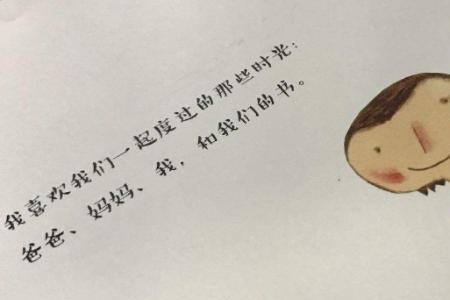 我喜欢我们一起度过的那些时光：
爸爸、妈妈、我，和我们的书。